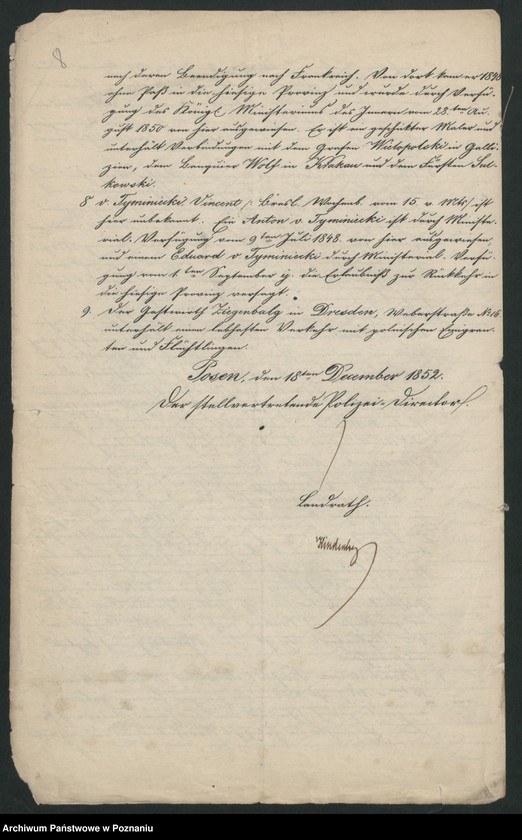 8
nach deren Beendigung nach Frankreich. Von dort kam er 1848
ohne Paß in die hiesige Provinz und wurde durch Verfü-
gung des Königl. Ministeriums des Innern vom 28. ten Au-
gust 1850 von hier ausgewiesen. Er ist ein geschickter Maler und
unterhält Verbindungen mit dem Grafen Wielopolski in Galli-
zien, dem Banquier Wolf in Krakau und dem Fürsten Sul-
kowski.
8 v. Tyminiecki Vincent /: Bresl. Wochenb. vom 15 v. Mts :/ ist
hier unbekannt. Ein Anton v. Tyminiecki ist durch Ministe-
rial-Verfügung vom 9 ten Juli 1848. von hier ausgewiesen,
und einem Eduard v Tyminiecki durch Ministerial-Verfü-
gung vom 1. ten September die Erlaubniß zur Rückkehr in
die hiesige Provinz versagt.
9. Der Gastwirth Ziegenbalg in Dresden, Weberstraße No 16
unterhält einen lebhaften Verkehr mit polnischen Emigran-
ten und Flüchtlingen.
Posen, den 18 ten December 1852.
Der stellvertretende Polizei-Director.
Landrath.
Archiwum Państwowe w Poznaniu